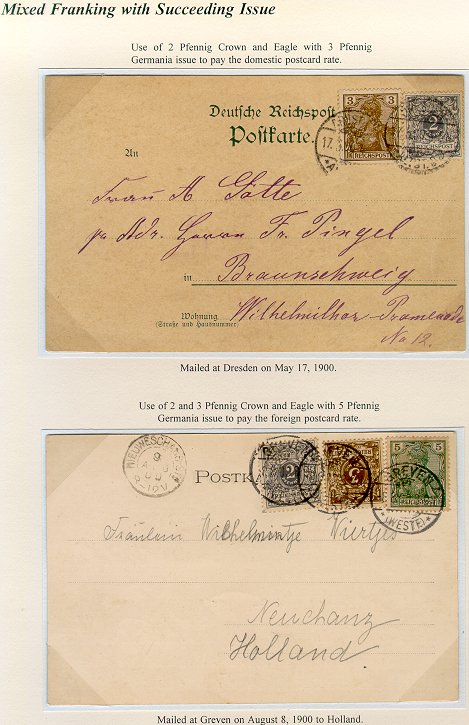 Mixed Franking with Succeeding Issue
Use of 2 Pfennig Crown and Eagle with 3 Pfennig
Germania issue to pay the domestic postcard rate.
Deutsche Reichspost
Postkarte.
3
REICHSPOST
2
17.
An
Frau A Götte
pr Adr. Herrn Fr. Pingel
in Braunschweig
Wohnung
(Straße und Hausnummer)
Wilhelmithor-Promenade
No 12.
Mailed at Dresden on May 17, 1900.
Use of 2 and 3 Pfennig Crown and Eagle with 5 Pfennig
Germania issue to pay the foreign postcard rate.
NIEUWESCHANS
9
POSTKA
2
3
5
5
GREVEN
(WESTF)
Fräulein Wilhelmintje Viertjes
Neuchanz
Holland
Mailed at Greven on August 8, 1900 to Holland.